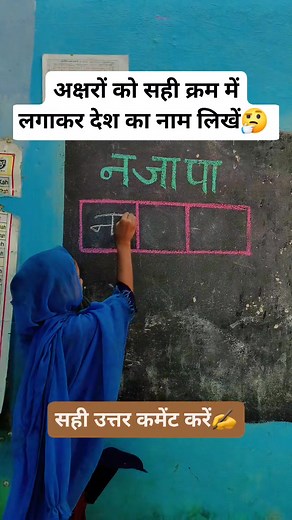 अक्षरों को सही क्रम में
लगाकर देश का नाम लिखें🤔
न जा पा
न
सही उत्तर कमेंट करें✍️